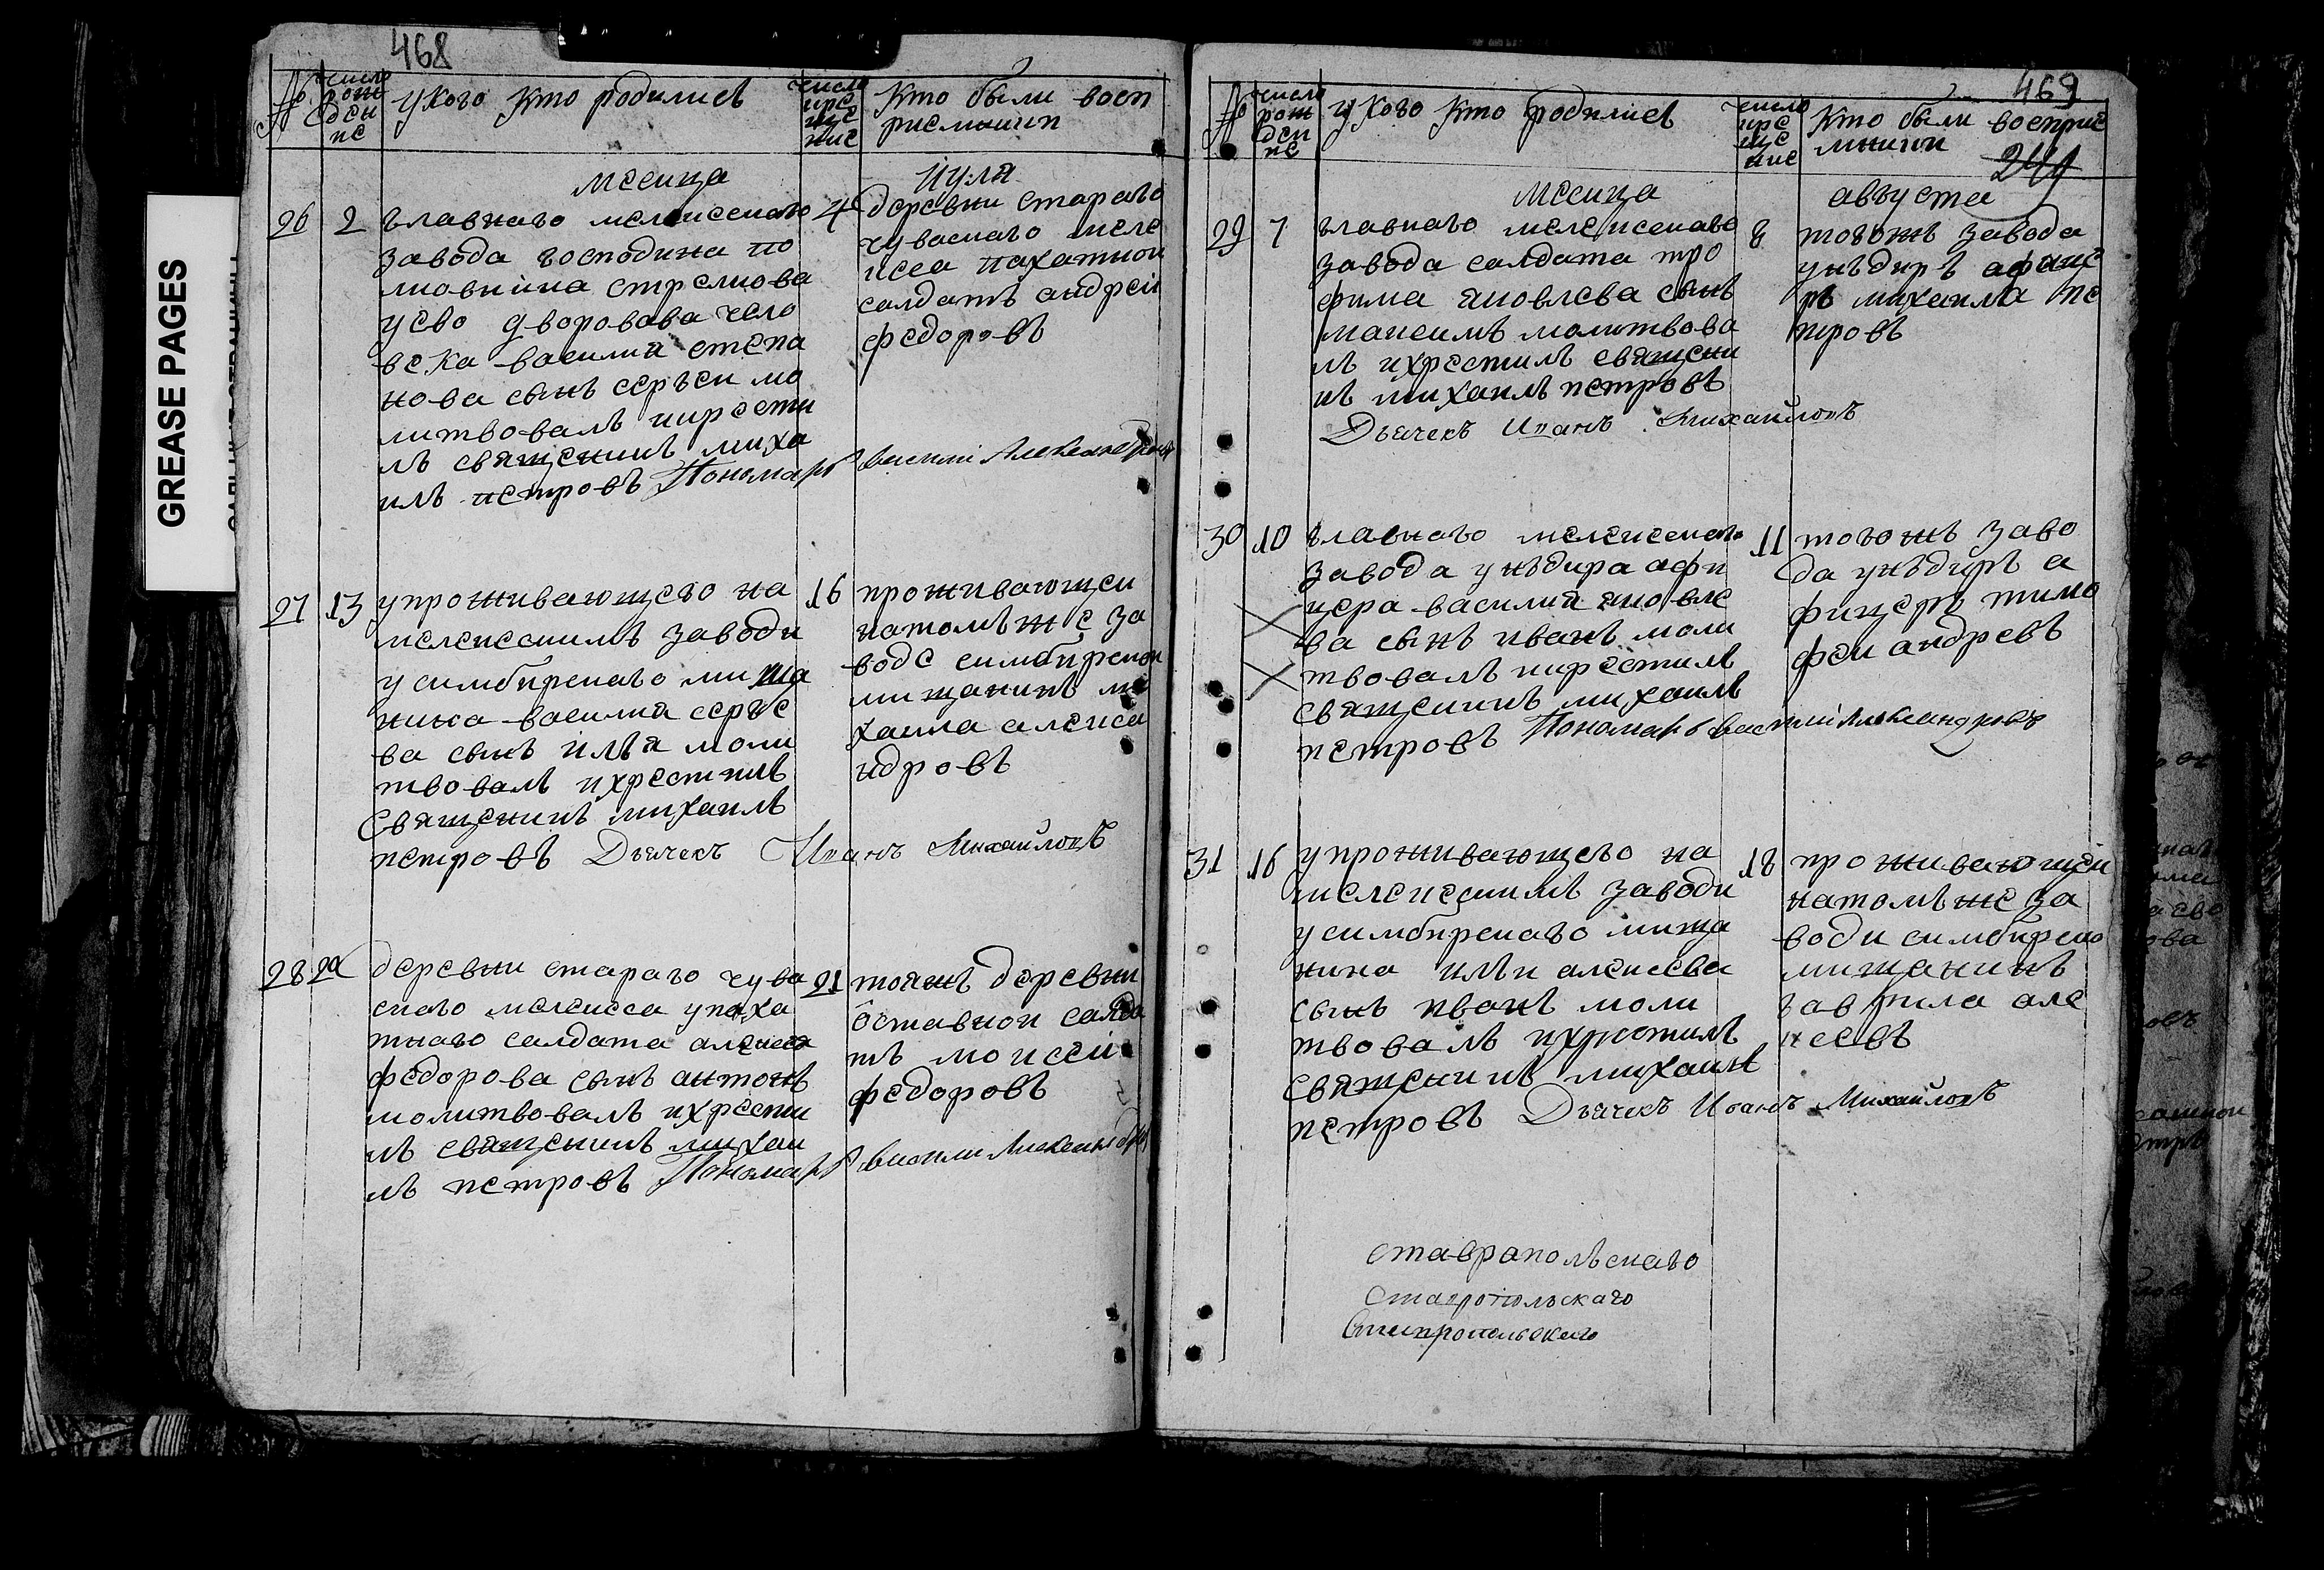 GREASE PAGES
468
№
число рождение
у кого кто родилисъ
число крещение
кто были восп
риемники
месица
июля
26
2
главнаго мелекескаго
завода господина по
лковника стрелкова
у ево дворовова чело
века василия степа
нова сынъ сергеи мо
литвовалъ икрести
лъ священикъ миха
илъ петровъ Пономарь василий Александровъ
4
деревни стараго
чуваскаго меле
кеса пахатнои
салдатъ андреи
федоровъ
27
13
упроживающего на
мелекескимъ заводи
у симбирскаго мища
нина василия сергее
ва сынъ илья моли
твовалъ ихрестилъ
священикъ михаилъ
петровъ Дьячекъ Иванъ Михайловъ
16
проживающеи
натомъ же за
воде симбирскои
мищанинъ ми
хаила алекса
ндровъ
28
20
деревни стараго чува
скаго мелекеса упаха
тнаго салдата алексея
федорова сынъ антонъ
молитвовалъ ихрести
лъ священикъ михаи
лъ петровъ Пономарь василий Александровъ
21
тояжъ деревни
оставнои салда
тъ моисеи
федоровъ
469
№
число рождение
у кого кто родилисъ
число крещение
кто были восприе
мники
244
месица
августа
29
7
главнаго мелекескаго
завода салдата тро
фима яковлева сынъ
максимъ молитвова
лъ ихрестилъ священи
къ михаилъ петровъ
Дьячекъ Иванъ Михайловъ
8
тогожъ завода
унъдиръ афице
ръ михаила пе
тровъ
30
10
главнаго мелекескаго
завода унъдира афи
цера василия яковле
ва сынъ иванъ моли
твовалъ икрестилъ
священикъ михаилъ
петровъ Пономарь василий Александровъ
11
тогожъ заво
да унъдиръ а
фицеръ тимо
феи андревъ
31
16
упроживающего на
мелекескимъ заводи
у симбирскаго мища
нина ильи алексева
сынъ иванъ моли
твовалъ ихрестилъ
священикъ михаилъ
петровъ Дьячекъ Иванъ Михайловъ
18
проживающеи
натомъ же за
води симбирско
мищанинъ
гаврила але
ксевъ
ставрапольскаго
Ставропольскаго
Ставропольскаго